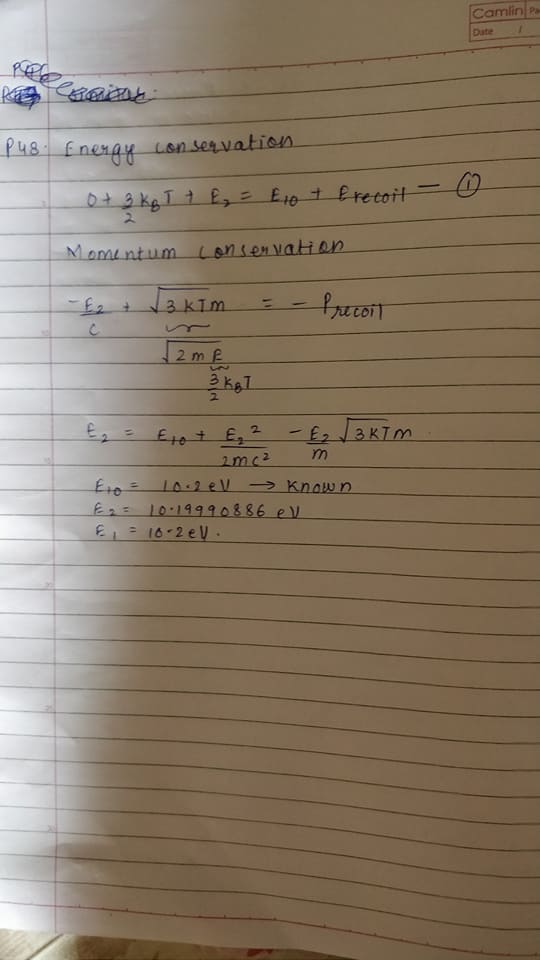 Camlin Pa
Date /
P48. Energy conservation
0 + 3/2 kBT + E2 = E10 + Erecoil — ①
Momentum conservation
-E2/c + √3kTm = - Precoil
√2mE
3/2 kBT
E2 = E10 + E2²/2mc² - E2/m √3kTm
E10 = 10.2 eV → Known
E2 = 10.19990886 eV
E1 = 10.2 eV.